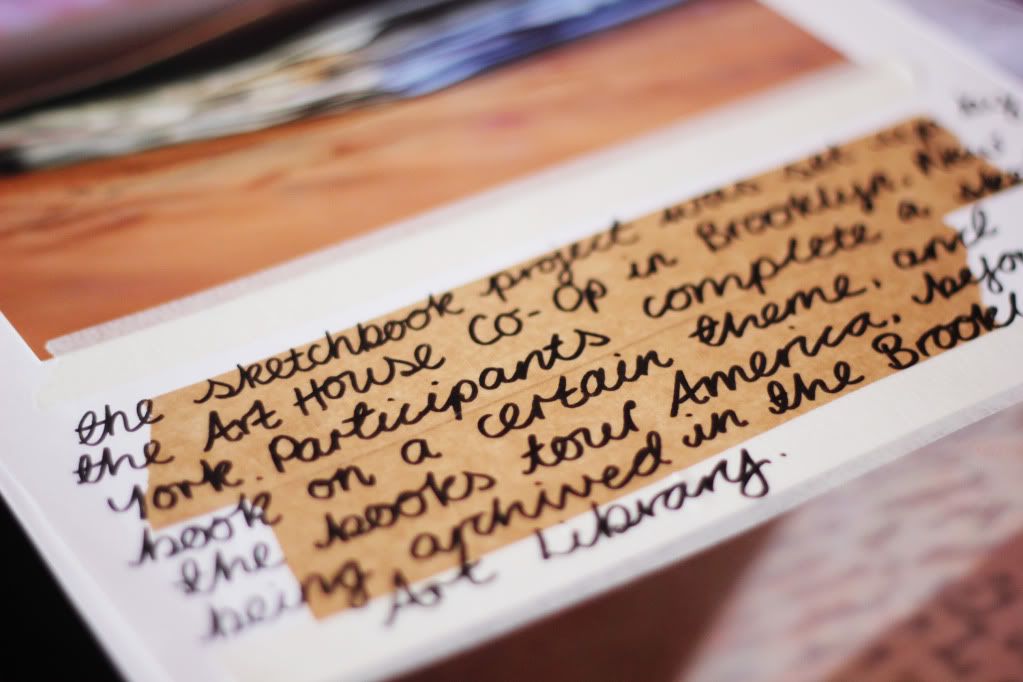 the sketchbook project was set up by
the Art House Co-Op in Brooklyn, New
York. Participants complete a
book on a certain theme, and
the books tour America, before
being archived in the Brooklyn
Art Library.